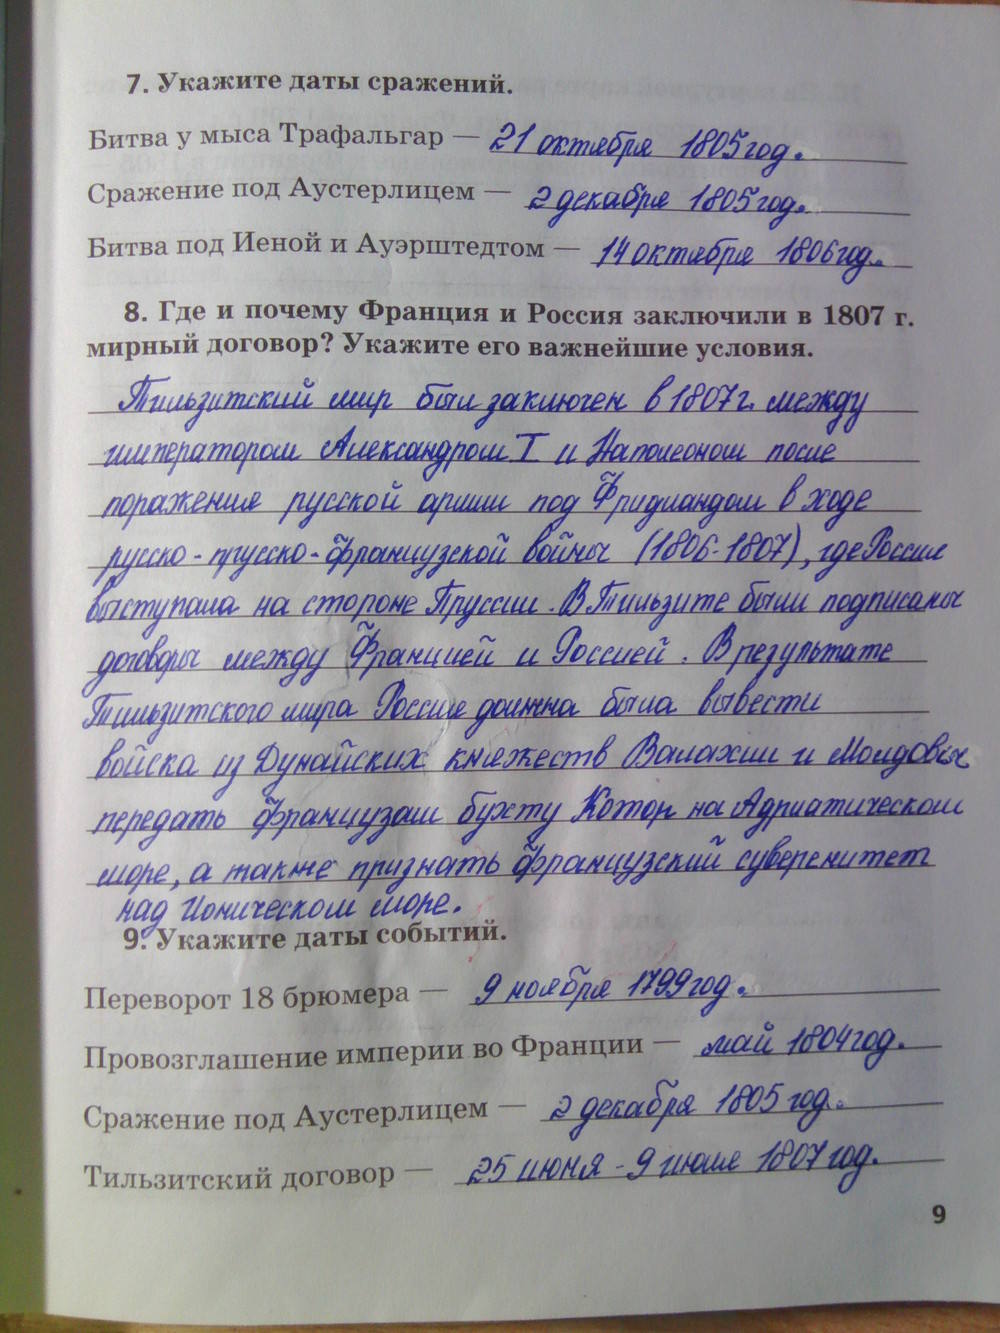 7. Укажите даты сражений.
Битва у мыса Трафальгар — 21 октября 1805 год.
Сражение под Аустерлицем — 2 декабря 1805 год.
Битва под Иеной и Ауэрштедтом — 14 октября 1806 год.
8. Где и почему Франция и Россия заключили в 1807 г.
мирный договор? Укажите его важнейшие условия.
Тильзитский мир был заключен в 1807 г. между
императором Александром I и Наполеоном после
поражения русской армии под Фридландом в ходе
русско-прусско-французской войны (1806-1807), где Россия
выступала на стороне Пруссии. В Тильзите были подписаны
договоры между Францией и Россией. В результате
Тильзитского мира Россия должна была вывести
войска из Дунайских княжеств Валахии и Молдовы
передать французам бухту Котор на Адриатическом
море, а также признать французский суверенитет
над Ионическом море.
9. Укажите даты событий.
Переворот 18 брюмера — 9 ноября 1799 год.
Провозглашение империи во Франции — май 1804 год.
Сражение под Аустерлицем — 2 декабря 1805 год.
Тильзитский договор — 25 июня - 9 июля 1807 год.
9